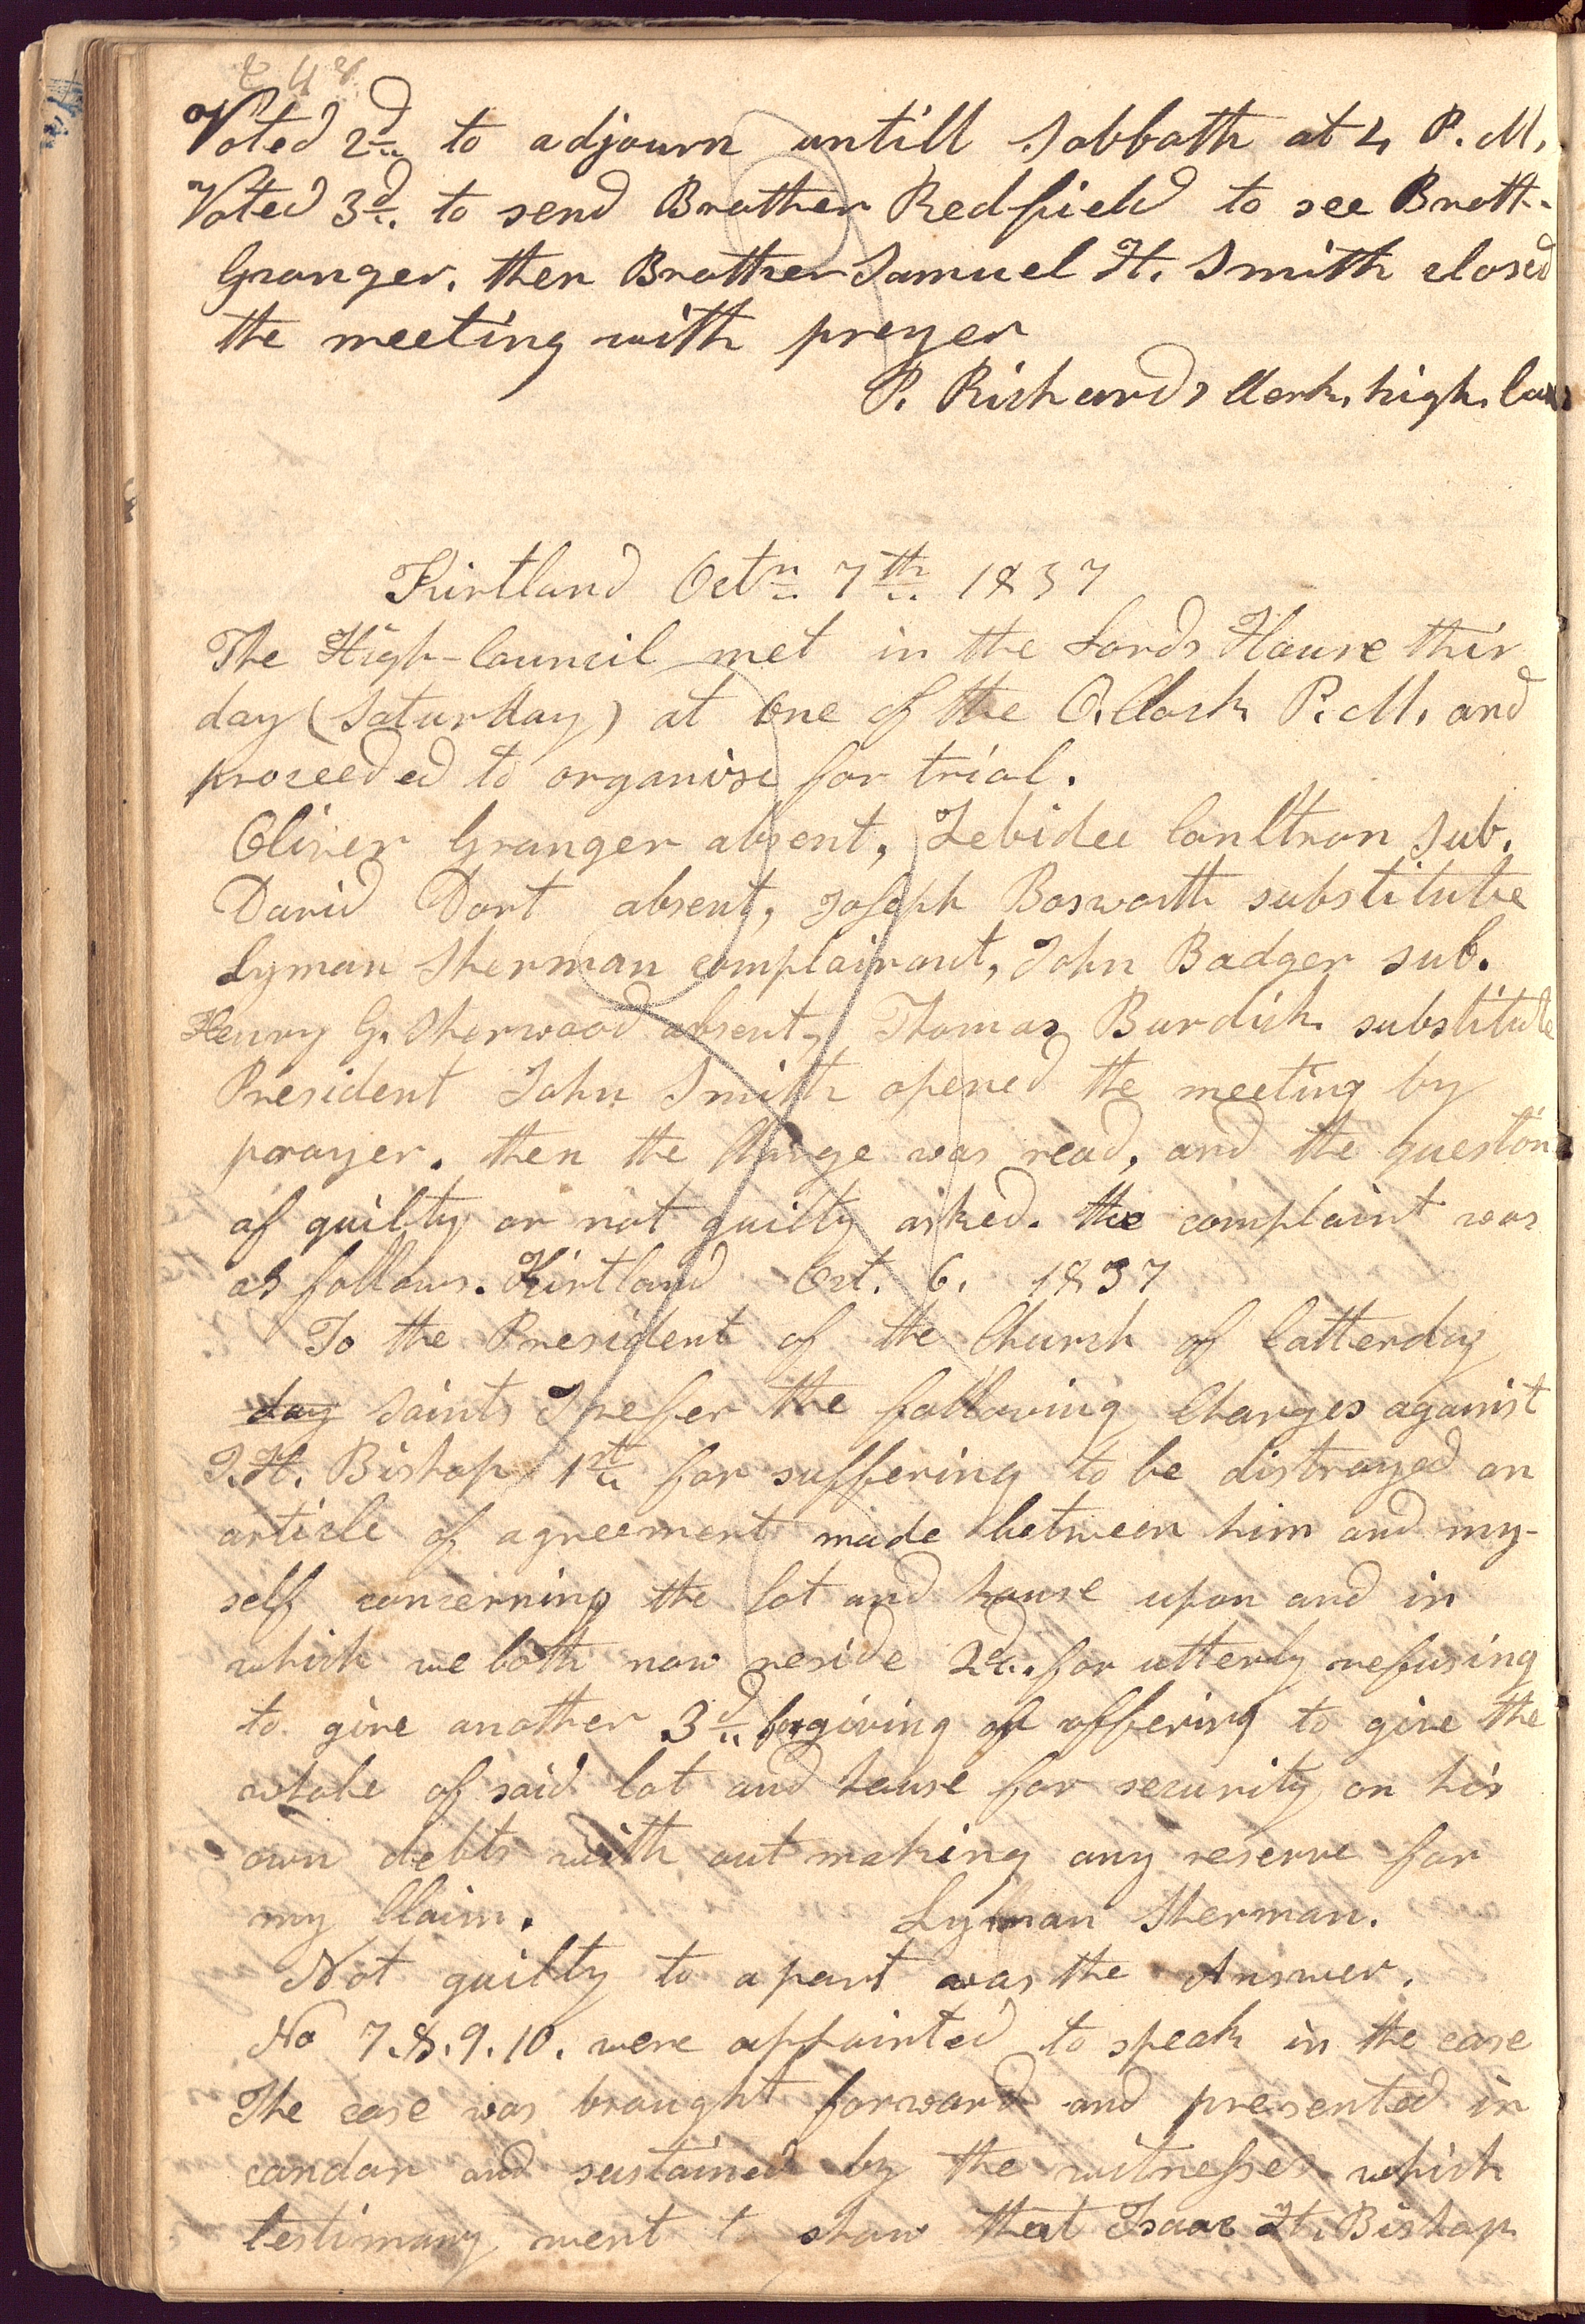 248
Voted 2d to adjourn untill Sabbath at 4 P. M.
Voted 3d. to send Brother Redfield to see Broth.
Granger. then Brother Samuel H. Smith closed
the meeting with preyer
P. Richards Clerk, high. Coun
Kirtland Octr. 7th. 1837
The High-Council met in the Lords House this
day (Saturday) at One of the O.Clock P. M. and
proceeded to organise for trial.
Oliver Granger absent, Zebidee Conltron Sub.
David Dort absent, Joseph Bosworth substitute
Lyman Sherman complainant, John Badger sub.
Henry G. Sherwood absent, Thomas Burdick substitute
President John Smith opened the meeting by
prayer. then the Charge was read, and the question
of guilty or not guilty asked. the complaint was
as follows. Kirtland Oct. 6. 1837
To the President of the Church of Latterday
day Saints I prefer the following Charges against
I. H. Bishop 1st. for suffering to be distroyed an
article of agreement made between him and my-
self concerning the lot and house upon and in
which we both now reside 2d. for utterly refusing
to give another 3d. for giving or offering to give the
whole of said lot and house for security on his
own debts with out making any reserve for
my Claim. Lyman Sherman.
Not guilty to a part was the Answer.
No 7.8.9.10. were appointed to speak in the case
The case was brought forward and presented in
candor and sustained by the witnesses which
testimony went to show that Isaac H. Bishop